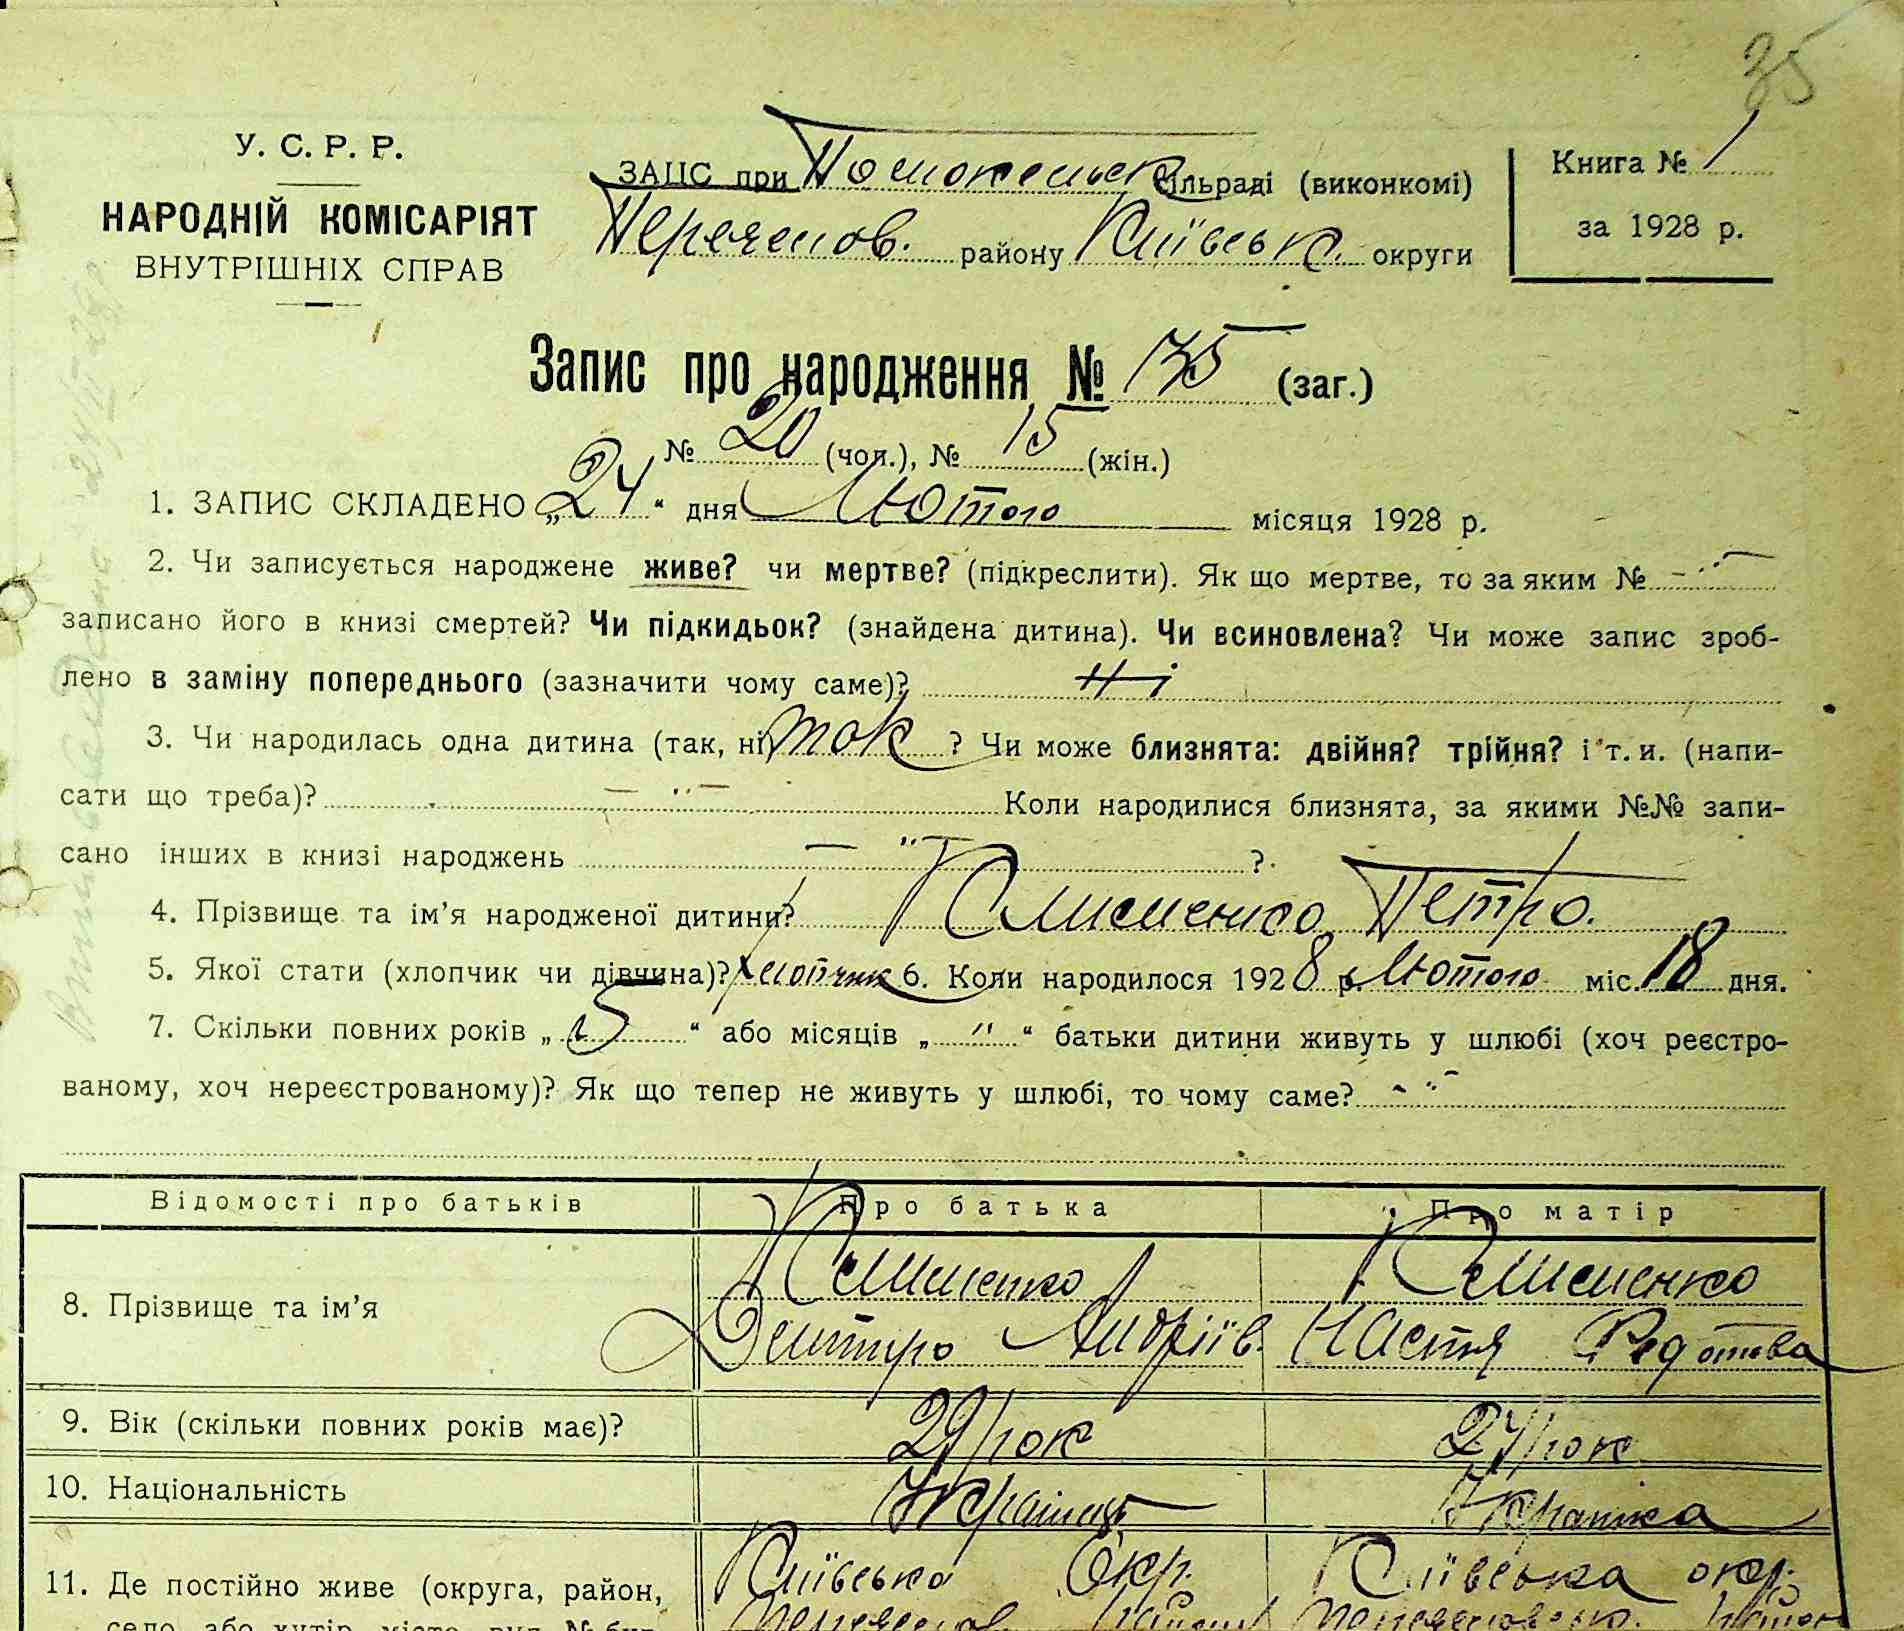 35
У. С. Р. Р.
НАРОДНІЙ КОМІСАРІЯТ
ВНУТРІШНІХ СПРАВ
ЗАЦС при сільраді (виконкомі)
району Київськ. округи
Книга № 1
за 1928 р.
Запис про народження № 35 (заг.)
№ 20 (чол.), № 15 (жін.)
1. ЗАПИС СКЛАДЕНО „24“ дня Лютого місяця 1928 р.
2. Чи записується народжене живе? чи мертве? (підкреслити). Як що мертве, то за яким № - " -
записано його в книзі смертей? Чи підкидьок? (знайдена дитина). Чи всиновлена? Чи може запис зроб-
лено в заміну попереднього (зазначити чому саме)? Ні
3. Чи народилась одна дитина (так, ні) так ? Чи може близнята: двійня? трійня? і т. и. (напи-
сати що треба)? — " — Коли народилися близнята, за якими №№ запи-
сано інших в книзі народжень — " — ?
4. Прізвище та ім’я народженої дитини? Клименко Петро.
5. Якої стати (хлопчик чи дівчина)? Хлопчик 6. Коли народилося 1928 р. Лютого міс. 18 дня.
7. Скільки повних років „5“ або місяців „ " “ батьки дитини живуть у шлюбі (хоч реєстро-
ваному, хоч нереєстрованому)? Як що тепер не живуть у шлюбі, то чому саме? - " -
Відомості про батьків Про батька Про матір
8. Прізвище та ім’я Клименко Клименко
Дмитро Андріїв. Настя Федотова
9. Вік (скільки повних років має)? 29 рок 24 рок
10. Національність Українець Українка
11. Де постійно живе (округа, район, Київська Окр. Київська окр.
село або хутір, місто, вул. № буд.